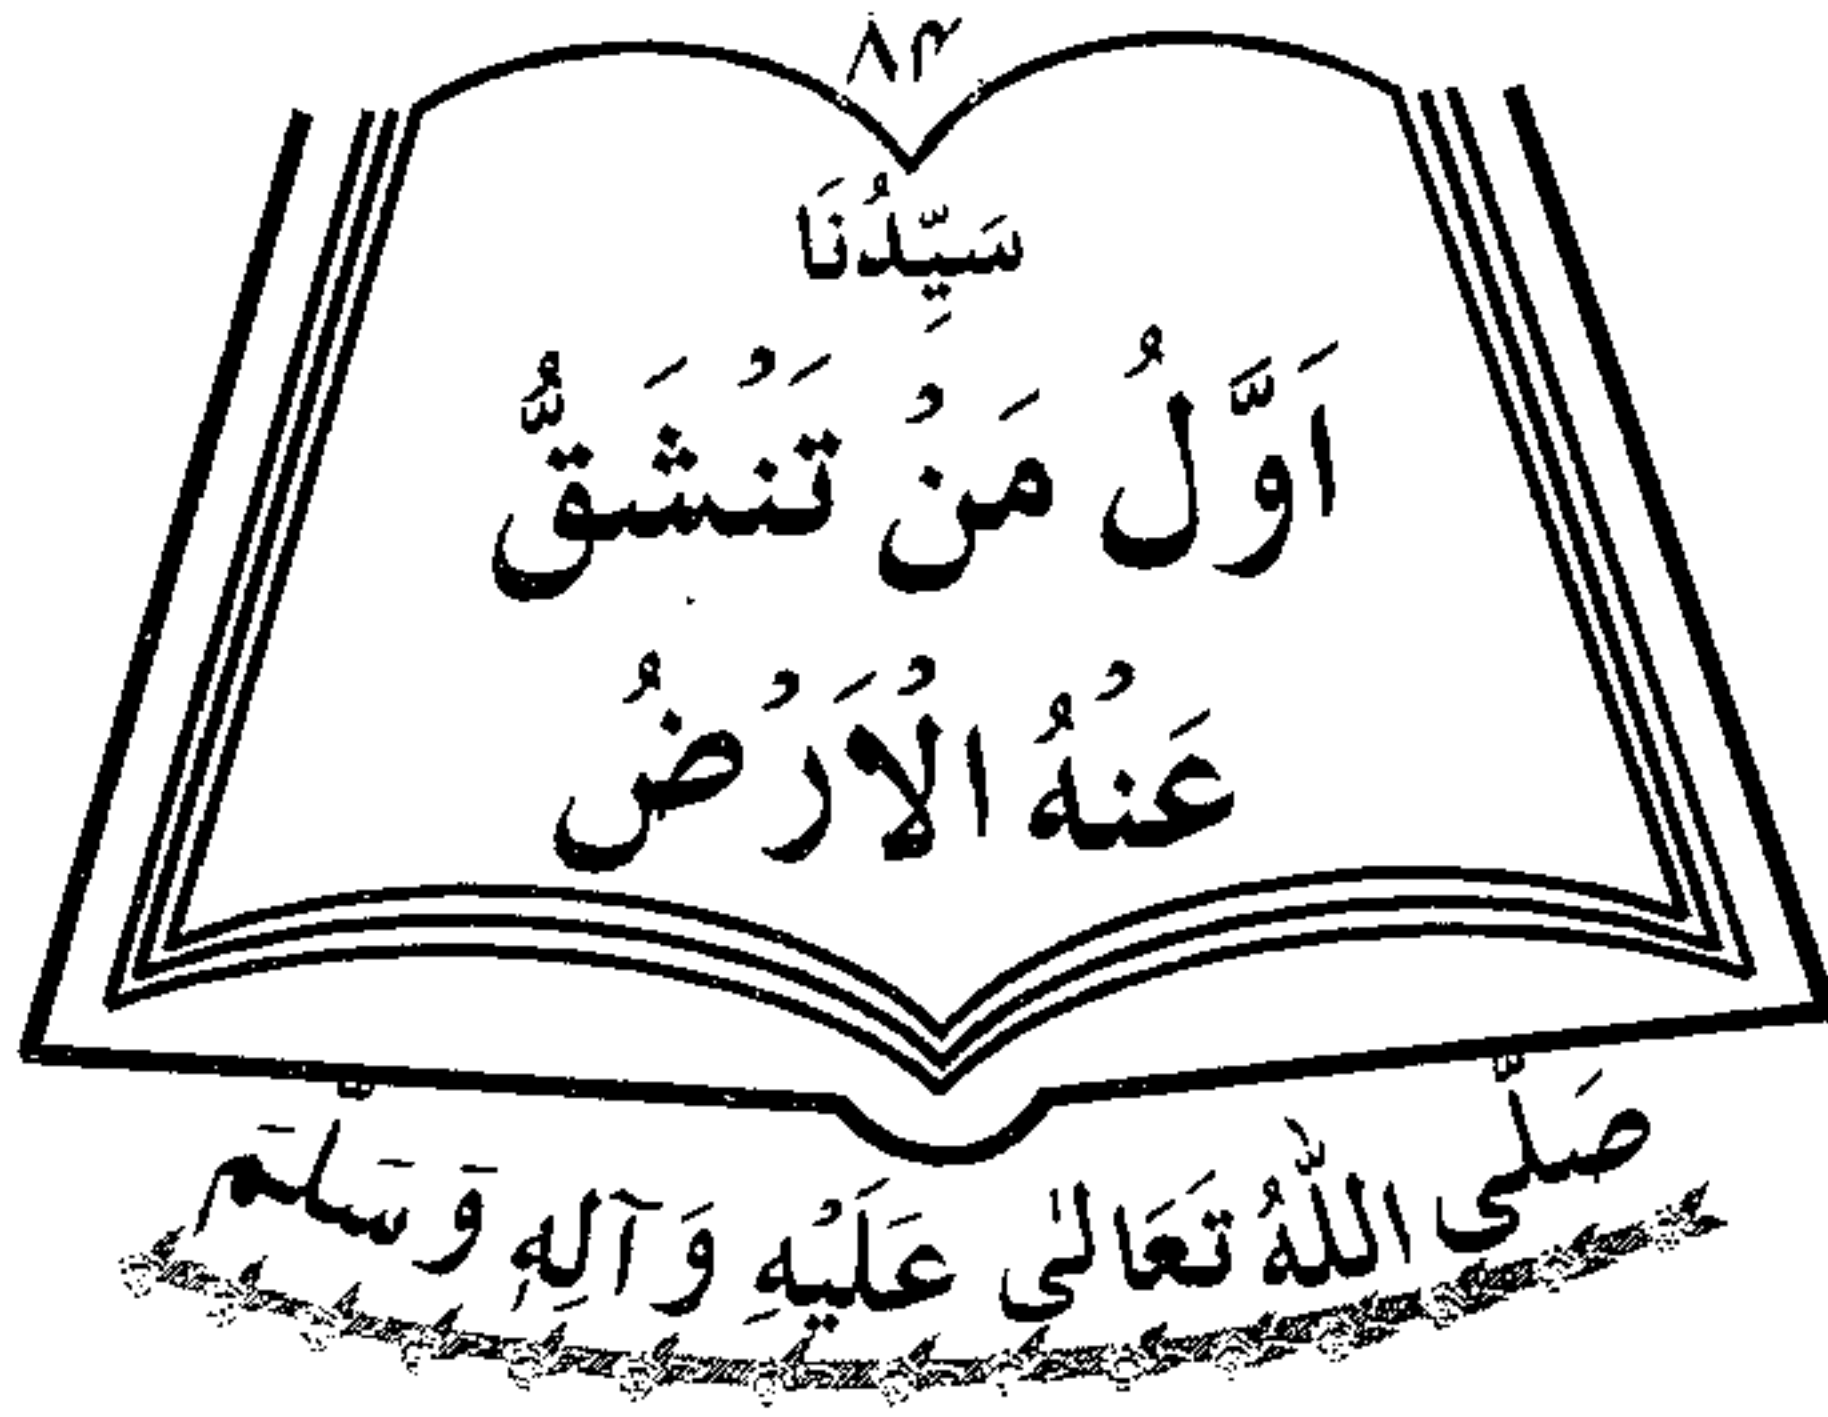 ۸۴
سَیِّدُنَا
اَوَّلُ مَنْ تَنْشَقُّ
عَنْهُ الْاَرْضُ
صَلَّی اللّٰهُ تَعَالٰی عَلَیْهِ وَآلِهٖ وَسَلَّمَ